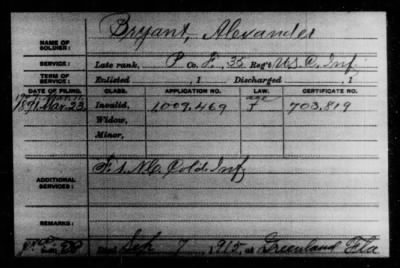 NAME OF SOLDIER: Bryant, Alexander
SERVICE: Late rank, P Co. F, 35 Reg't U.S.C. Inf
TERM OF SERVICE: Enlisted , 1 Discharged , 1
DATE OF FILING. CLASS. APPLICATION NO. LAW. CERTIFICATE NO.
1891 Mar. 23 Invalid, 1009.469 703.819
Widow,
Minor,
ADDITIONAL SERVICES: F. 1. N.C. Cold. Inf
REMARKS:
Died Sep 7, 1915, at Greenland Fla